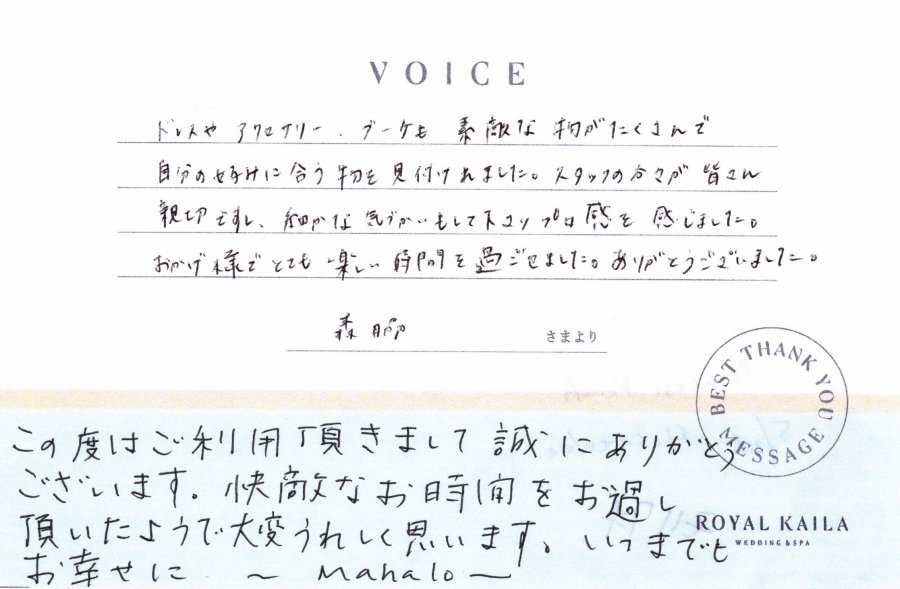 VOICE
ドレスや アクセサリー、ブーケも 素敵な 物がたくさんで
自分の好みに合う 物を 見付けれました。スタッフの方々が 皆さん
親切ですし、細かな 気づかいもして 感を 感じました。
おかげ様で とても 楽しい 時間を 過ごせました。ありがとうございました。
森脇 さまより
BEST THANK YOU MESSAGE
この度はご利用頂きまして 誠にありがとう
ございます。快敵なお時間をお過し
頂いたようで大変うれしく思います。いつまでも
お幸せに ～ Mahalo ～
ROYAL KAILA
WEDDING & SPA